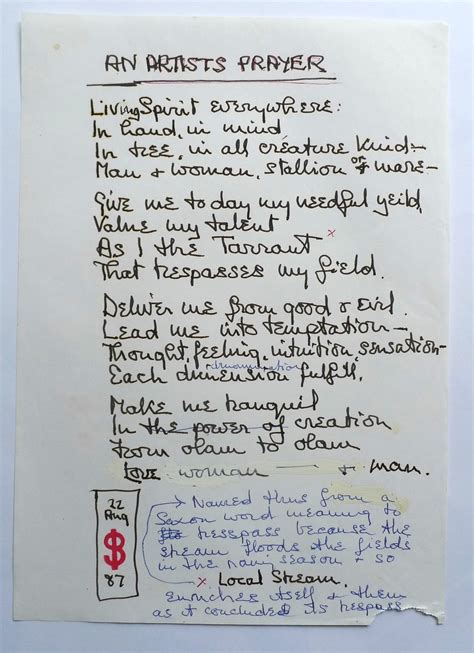 AN ARTISTS PRAYER
Living Spirit everywhere:
In hand, in mind
In tree, in all creature kind:-
Man & woman, stallion or mare-
Give me to day my needful yeild,
Value my talent
As I the Tarrant x
That trespasses my field.
Deliver me from good & Evil.
Lead me into temptation-
Thought, feeling, intuition, sensation-
Each dimension fulfill.
Make me tranquil
In the power of creation
From olam to olam
Love woman — & man.
22
Aug
$
87
Named thus from a
Saxon word meaning to
tresspass because the
stream floods the fields
in the rainy season & so
x Local Stream.
enriches itself & them
as it concludes its trespass